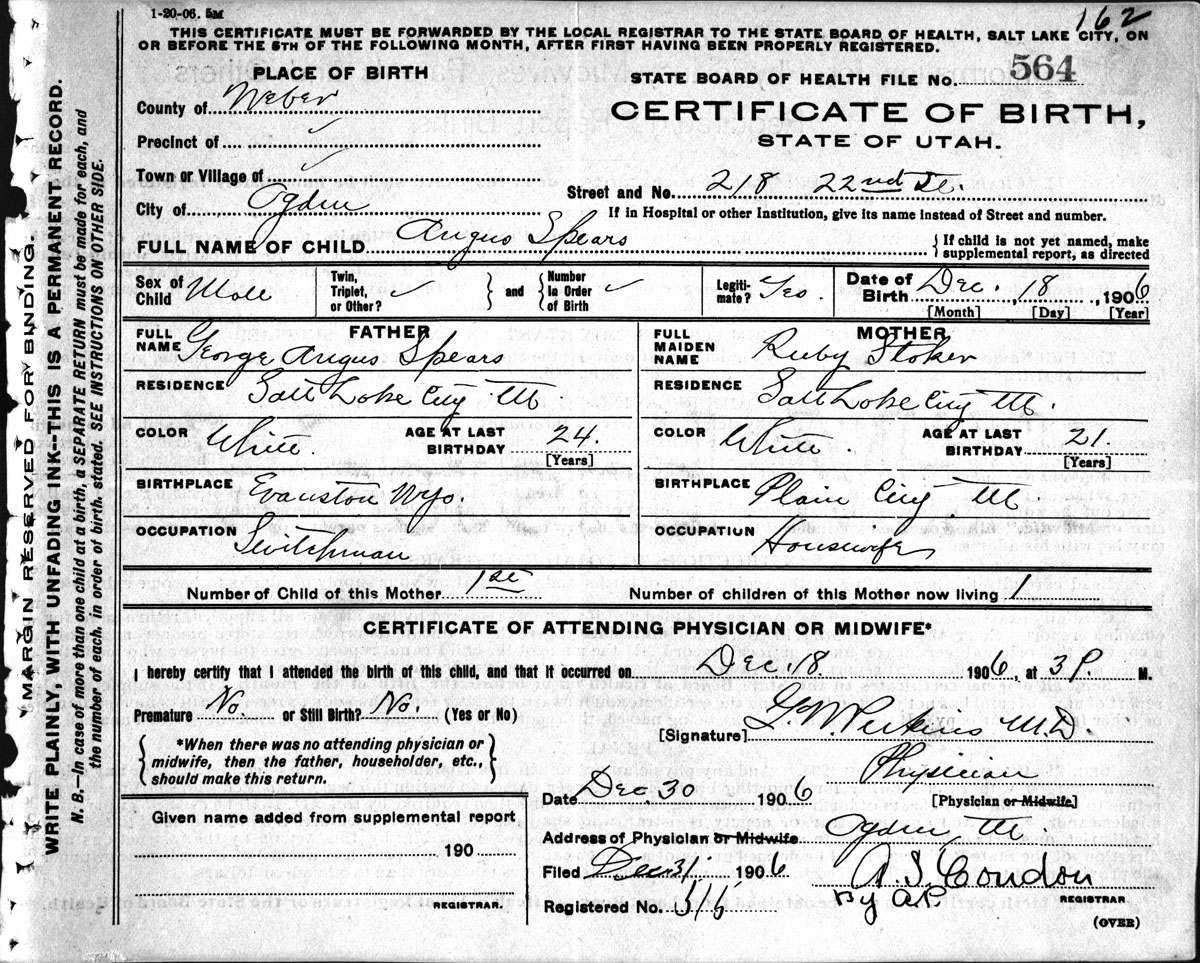 1-20-06. 5M
162
THIS CERTIFICATE MUST BE FORWARDED BY THE LOCAL REGISTRAR TO THE STATE BOARD OF HEALTH, SALT LAKE CITY, ON
OR BEFORE THE 5TH OF THE FOLLOWING MONTH, AFTER FIRST HAVING BEEN PROPERLY REGISTERED.
MARGIN RESERVED FOR BINDING.
WRITE PLAINLY, WITH UNFADING INK--THIS IS A PERMANENT RECORD.
N. B.—In case of more than one child at a birth, a SEPARATE RETURN must be made for each, and
the number of each, in order of birth, stated. SEE INSTRUCTIONS ON OTHER SIDE.
PLACE OF BIRTH
County of Weber
Precinct of ✓
Town or Village of ✓
City of Ogden
STATE BOARD OF HEALTH FILE No. 564
CERTIFICATE OF BIRTH,
STATE OF UTAH.
Street and No. 218 22nd St.
If in Hospital or other Institution, give its name instead of Street and number.
FULL NAME OF CHILD Angus Spears
{If child is not yet named, make
supplemental report, as directed
Sex of Child Male
Twin, Triplet, or Other? ✓
and
Number In Order of Birth ✓
Legiti-mate? Yes.
Date of Birth Dec. 18, 1906
[Month] [Day] [Year]
FATHER
FULL NAME George Angus Spears
RESIDENCE Salt Lake City Ut.
COLOR White. AGE AT LAST BIRTHDAY 24.
[Years]
BIRTHPLACE Evanston Wyo.
OCCUPATION Switchman
MOTHER
FULL MAIDEN NAME Ruby Stoker
RESIDENCE Salt Lake City Ut.
COLOR White. AGE AT LAST BIRTHDAY 21.
[Years]
BIRTHPLACE Plain City Ut.
OCCUPATION Housewife
Number of Child of this Mother 1st
Number of children of this Mother now living 1
CERTIFICATE OF ATTENDING PHYSICIAN OR MIDWIFE*
I hereby certify that I attended the birth of this child, and that it occurred on Dec. 18 1906, at 3 P. M.
Premature No. or Still Birth? No. (Yes or No)
{*When there was no attending physician or
midwife, then the father, householder, etc.,
should make this return.}
[Signature] Perkins M.D.
Physician
[Physician or Midwife]
Date Dec 30 1906
Given name added from supplemental report
190
REGISTRAR.
Address of Physician or Midwife. Ogden, Ut.
Filed Dec 31 1906
A. S. Condon
REGISTRAR
Registered No.
By
(OVER)